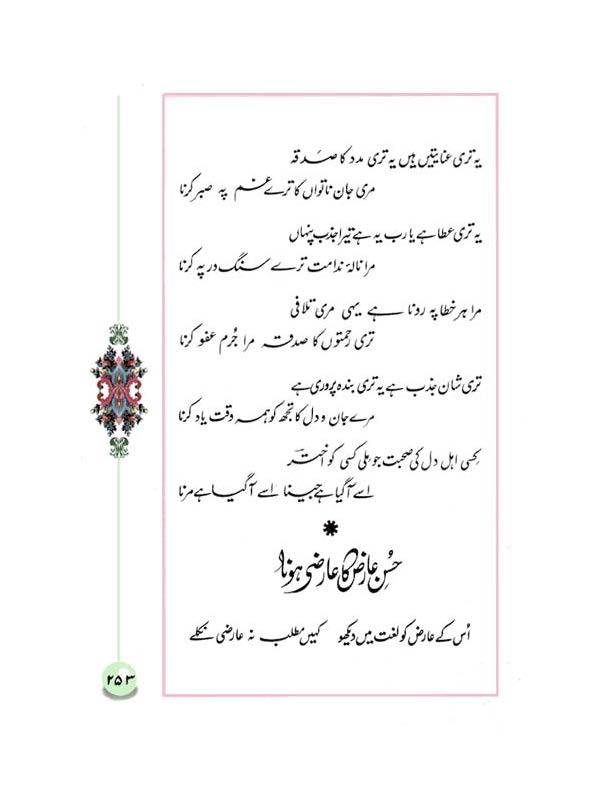 یہ تری عنایتیں ہیں یہ تری مدد کا صدقہ
مری جان ناتواں کا ترے غم پہ صبر کرنا
یہ تری عطا ہے یا رب یہ ہے تیرا جذب پنہاں
مرا نالۂ ندامت ترے سنگ در پہ کرنا
مرا ہر خطا پہ رونا ہے یہی مری تلافی
تری رحمتوں کا صدقہ مرا جُرم عفو کرنا
تری شان جذب ہے یہ تری بندہ پروری ہے
مرے جان و دل کا تجھ کو ہمہ وقت یاد کرنا
کسی اہل دل کی صحبت جو ملی کسی کو اختر
اسے آگیا ہے جینا اسے آگیا ہے مرنا
حُسنِ عارض کا عارضی ہونا
اُس کے عارض کو لغت میں دیکھو کہیں مطلب نہ عارضی نکلے
۲۵۳